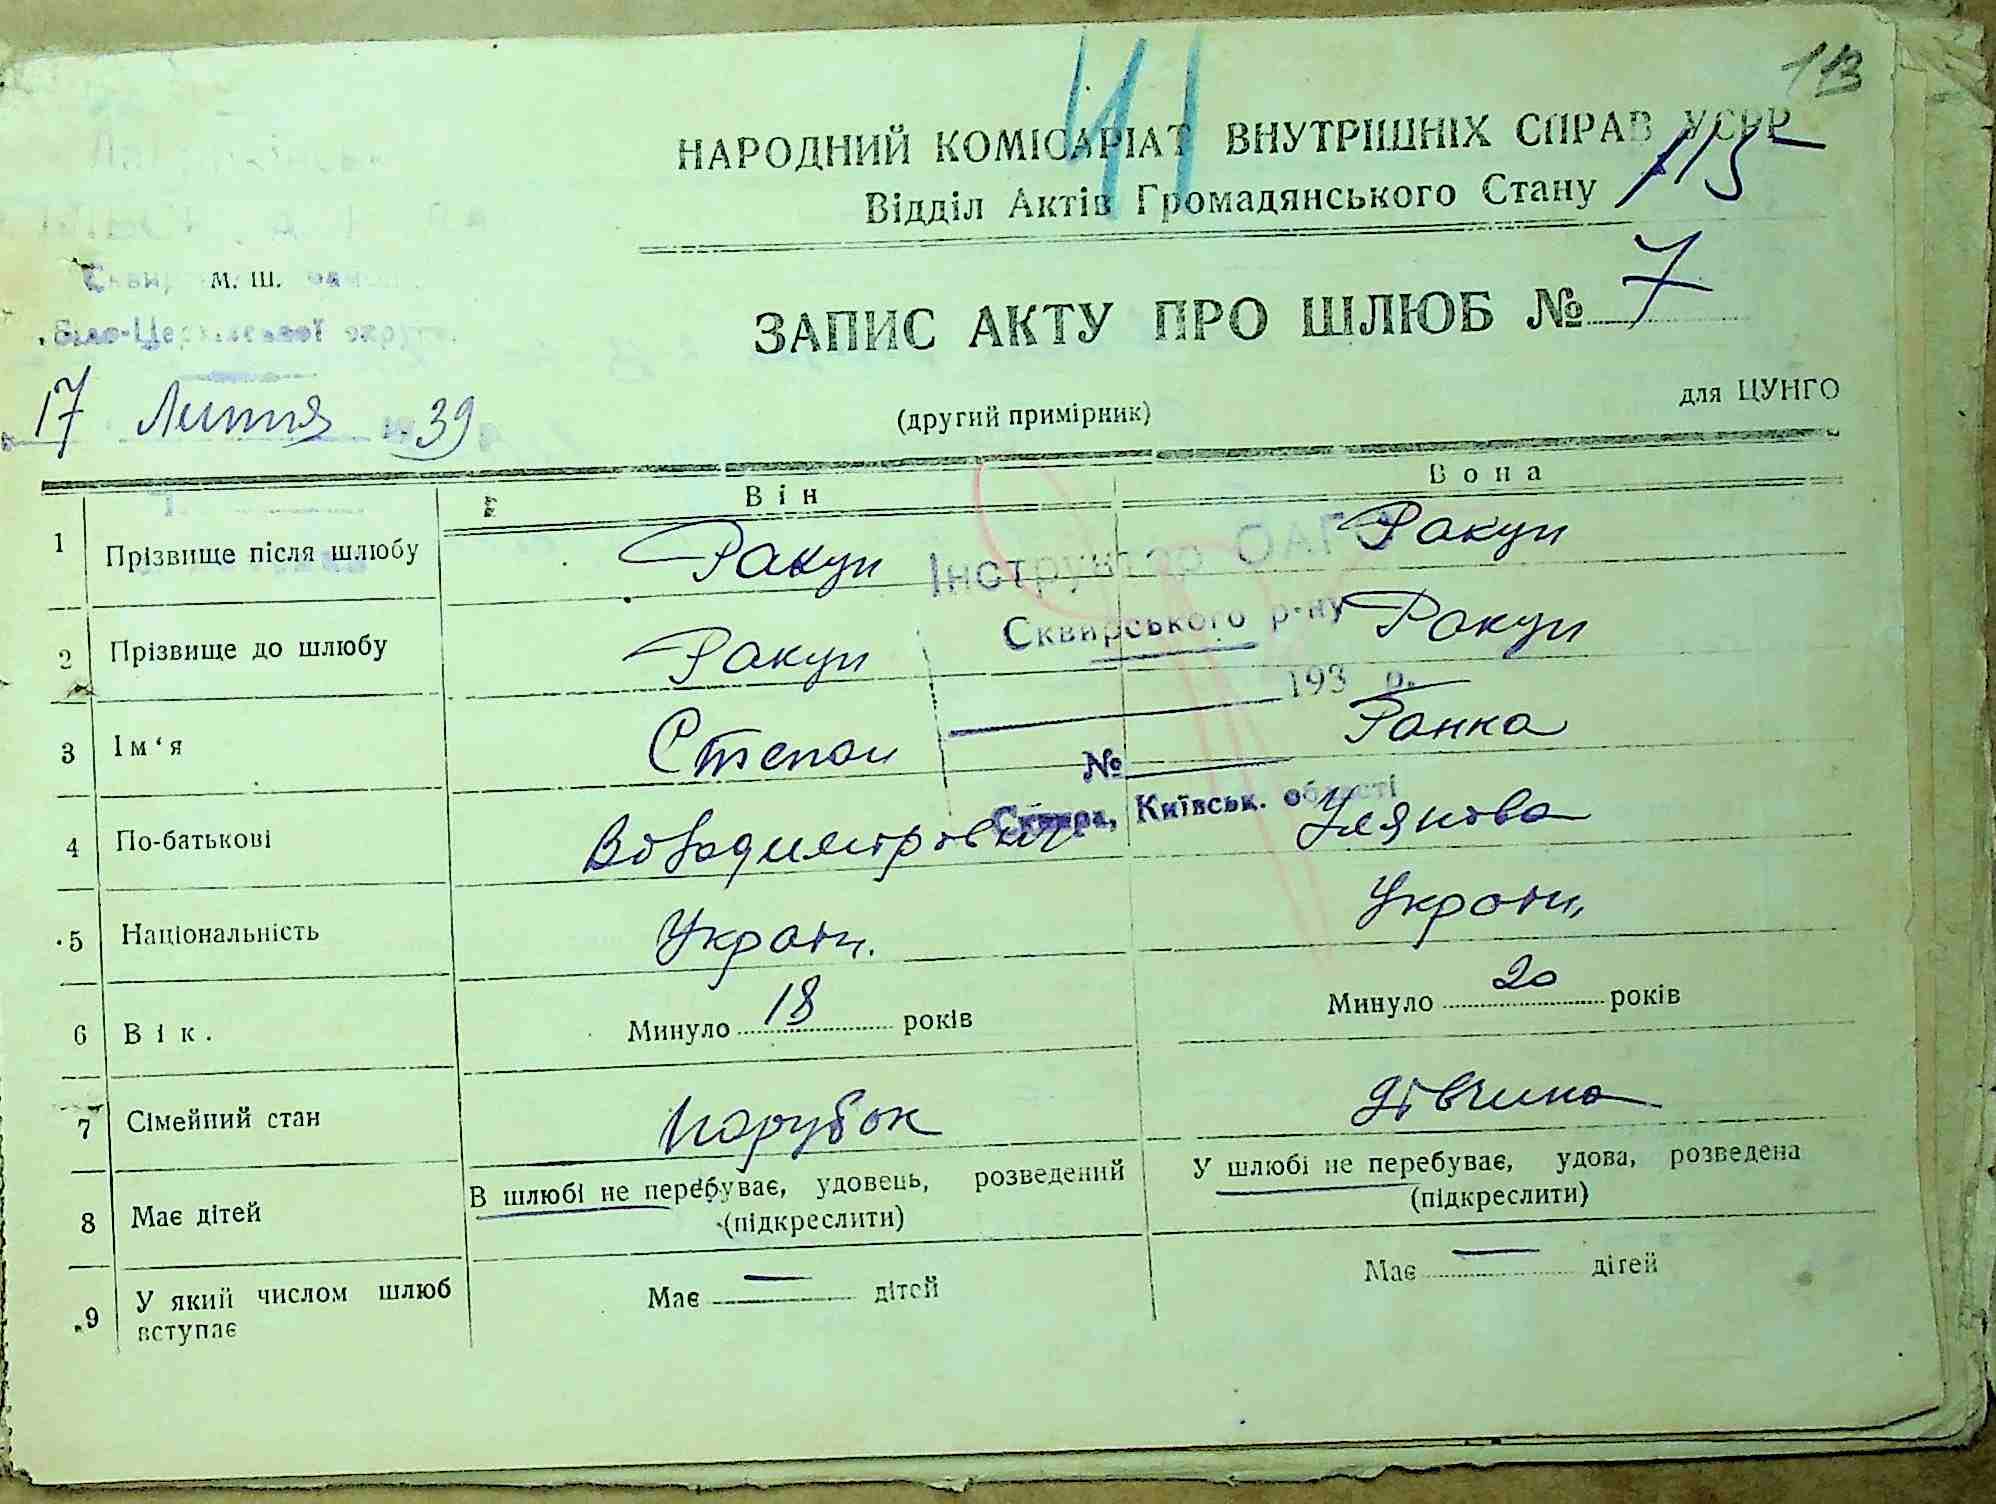 113
41
НАРОДНИЙ КОМІСАРІАТ ВНУТРІШНІХ СПРАВ УСРР
Відділ Актів Громадянського Стану 115
М. Ш.
Біло-Церківської округи
ЗАПИС АКТУ ПРО ШЛЮБ № 7
17 Лютня 39
(другий примірник)
для ЦУНГО
Він Вона
1 Прізвище після шлюбу Ракул Ракул
Інструктор ОАГС
2 Прізвище до шлюбу Ракул Ракул
Сквирського р-ну
193 р.
3 Ім‘я Степан Ганка
№
Сквира, Київськ. області
4 По-батькові Володимирович Улянова
5 Національність Україн. Україн.
6 Вік. Минуло 18 років Минуло 20 років
7 Сімейний стан Парубок дівчина
8 Має дітей В шлюбі не перебуває, удовець, розведений У шлюбі не перебуває, удова, розведена
(підкреслити) (підкреслити)
9 У який числом шлюб вступає Має — дітей Має — дітей